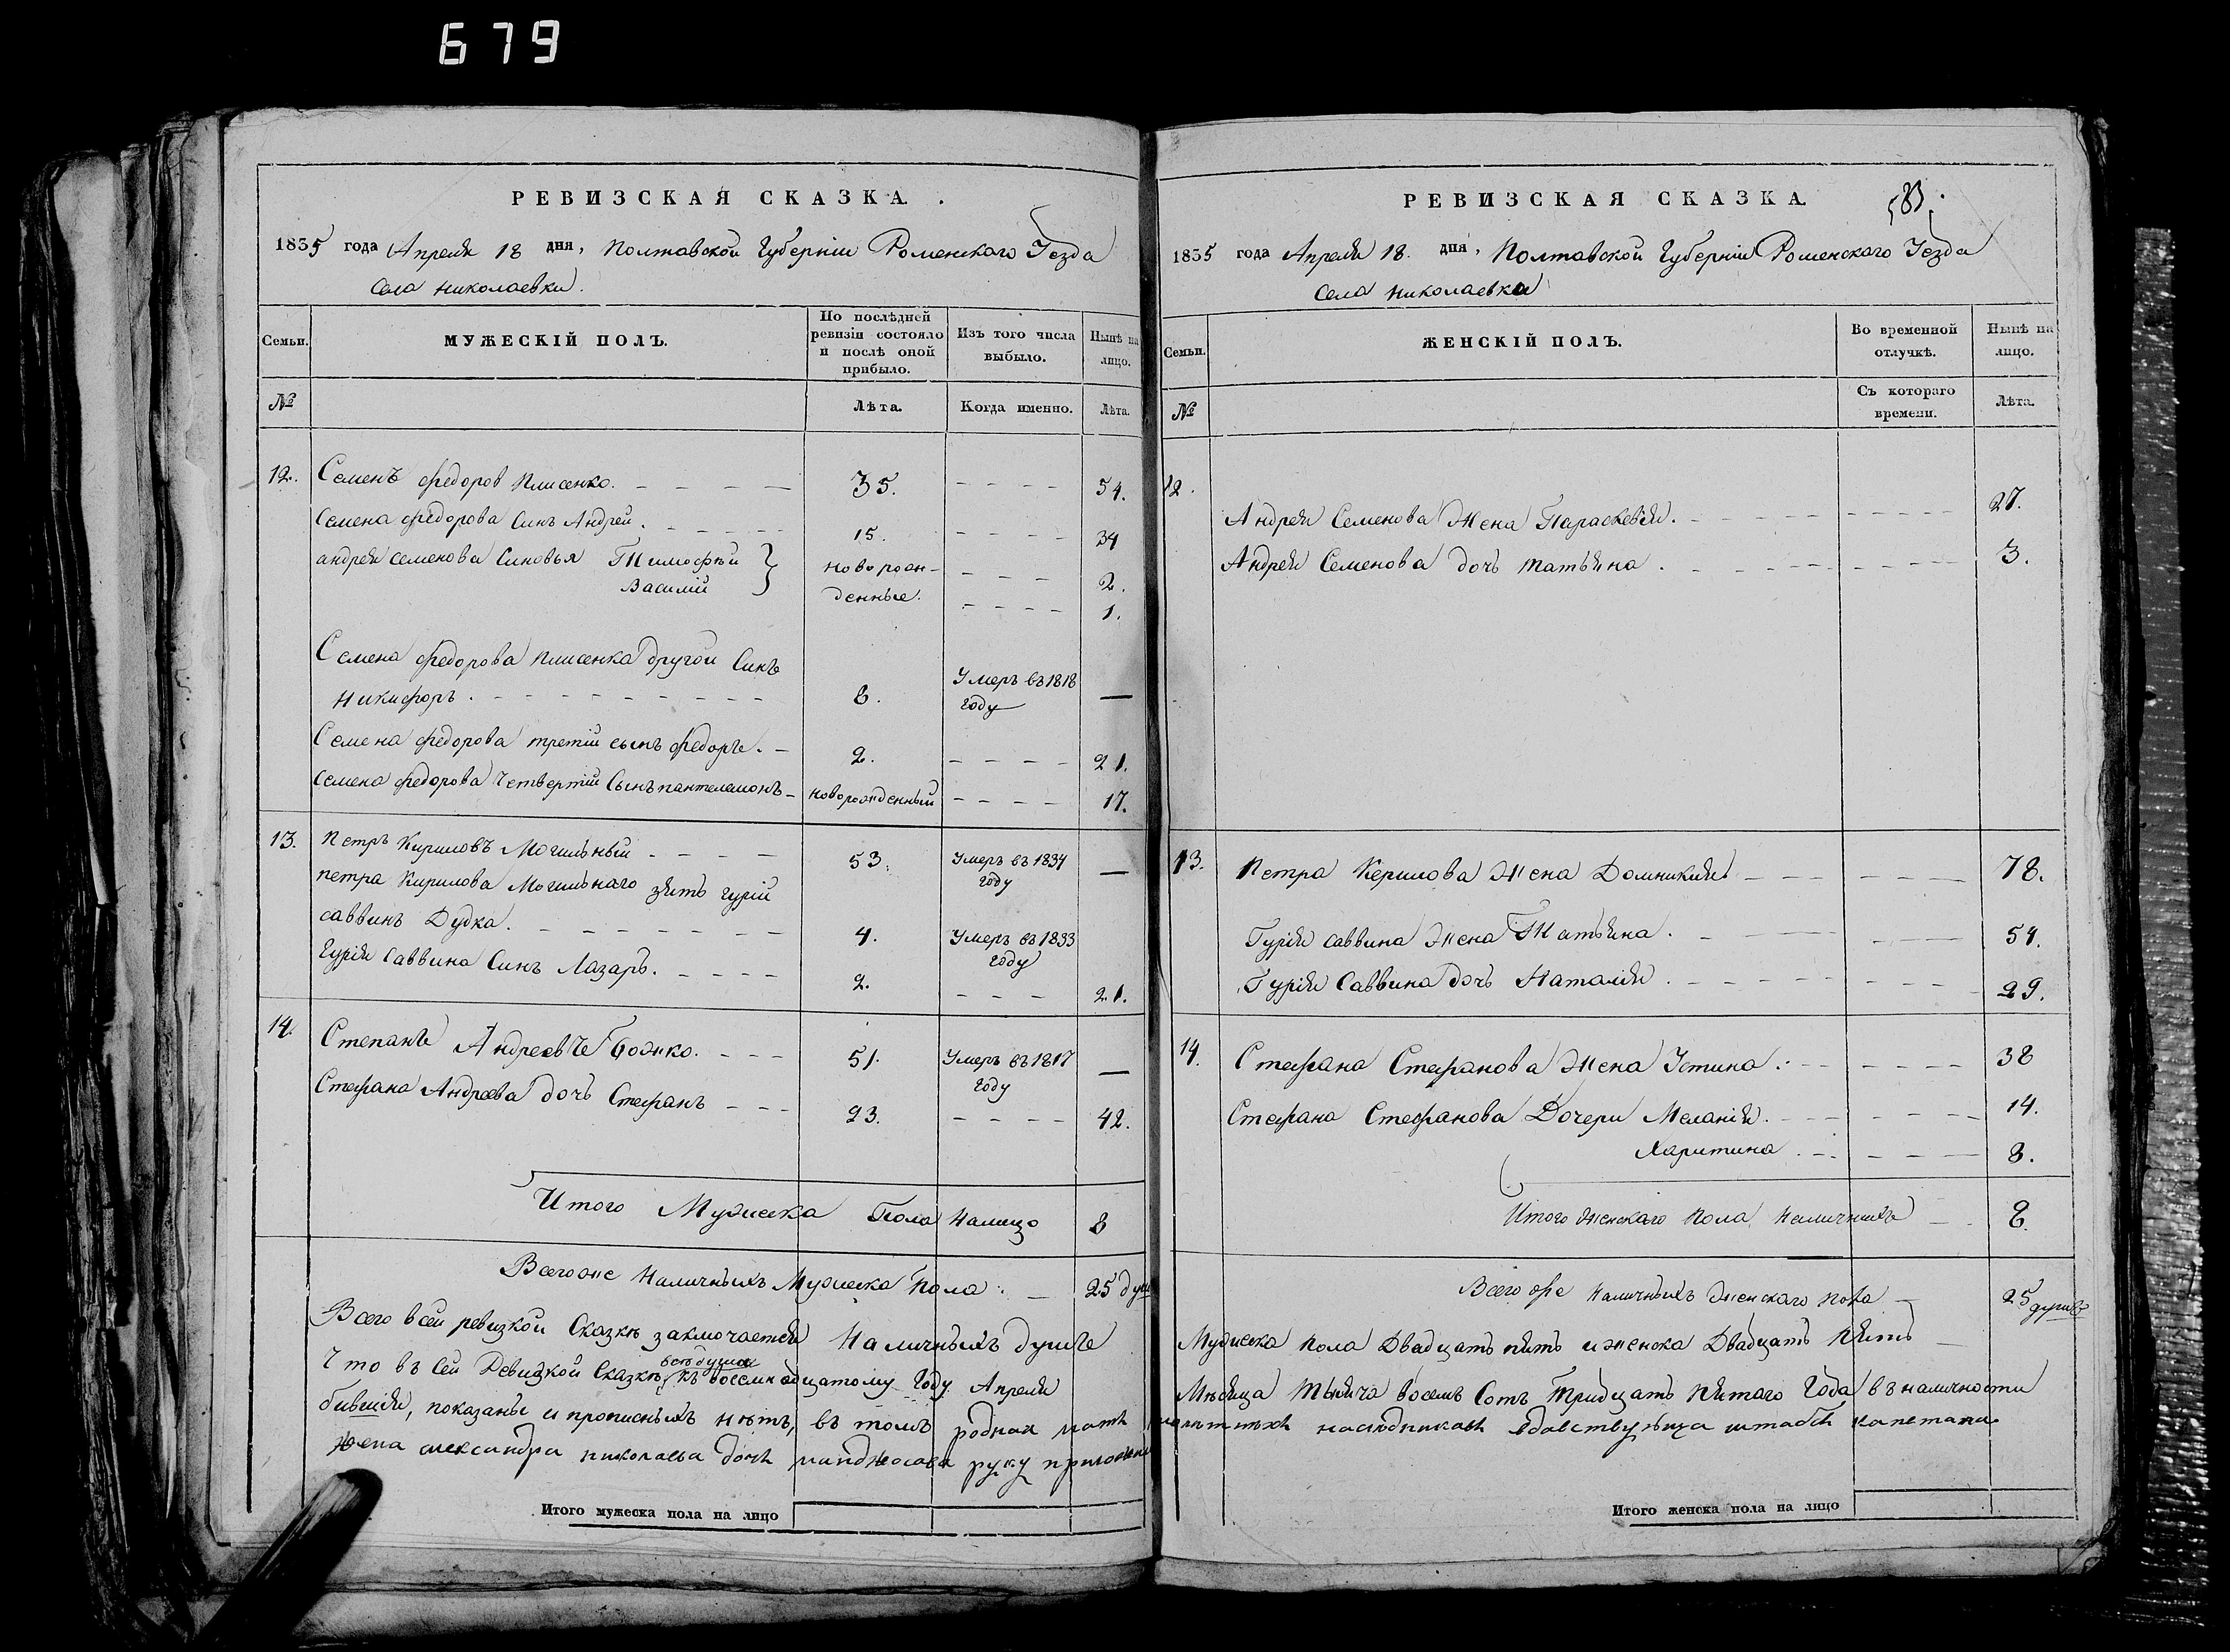 679
РЕВИЗСКАЯ СКАЗКА.
1835 года Апреля 18 дня, Полтавской Губерніи Роменскаго Уезда
Села Николаевки.
Семьи.
МУЖЕСКІЙ ПОЛЪ.
По послѣдней ревизіи состояло и послѣ оной прибыло.
Изъ того числа выбыло.
Нынѣ на лицо.
№
Лѣта.
Когда именно.
Лѣта.
12. Семенъ Федоров Плисенко. 35. 54.
Семена Федорова Синъ Андрей. 15. 34
андрея Семенова Синовья Тимофѣй новорож- 2.
Василій денные. 1.
Семена Федорова Плисенка другой Синъ
Никифоръ. 8. Умеръ въ 1818 году —
Семена Федорова третій сынъ Федоръ. 2. 21.
Семена Федорова Четвертій Сынъ пантелемонъ новорожденный 17.
13. Петръ Кириловъ Могильный 53. Умеръ въ 1834 году —
петра Кирилова Могильнаго зять гурій
саввинъ Дудка. 4. Умеръ въ 1833 году
Гурія Саввина Синъ Лазаръ. 2. 21.
14. Степанъ Андреевъ Божко. 51. Умеръ въ 1817 году —
Стефана Андреева дочъ Стефанъ 23. 42.
Итого Мужеска Пола Налицо 8
Всегоже Наличныхъ Мужеска Пола 25 душ
Всего всей ревизкой Сказкѣ заключается Наличныхъ душъ
Что въ Сей Ревизкой Сказкѣ, всѣ души къ восемнадцатому Году Апреля
бившія, показаны и прописныхъ нѣтъ, въ томъ родная мать
жена александра николаева дочь руку приложила
Итого мужеска пола на лицо
РЕВИЗСКАЯ СКАЗКА.
1835 года Апреля 18. дня, Полтавской Губерніи Роменского Уезда
Села Николаевки
Семьи.
ЖЕНСКІЙ ПОЛЪ.
Во временной отлучкѣ.
Нынѣ на лицо.
№
Съ котораго времени.
Лѣта.
12.
Андрея Семенова Жена Параскевія. 27.
Андрея Семенова дочъ татьяна. 3.
13. Петра Керилова Жена Домникия 78.
Гурія саввина Жена Татьяна. 54.
Гурія Саввина дочъ Наталія. 29.
14. Стефана Стефанова Жена Устина. 38
Стефана Стефанова Дочери Меланія. 14.
Харитина. 8.
Итого женскаго Пола Наличныхъ 8.
Всего же Наличныхъ Женскаго пола 25 душъ
Мужеска пола Двадцать пять и женска Двадцать Пять
Мѣсяца тысяча восемь Сотъ Тридцать Пятого Года въ наличности
наследникахъ вдовствующа штабсъ капетана
Итого женска пола на лицо